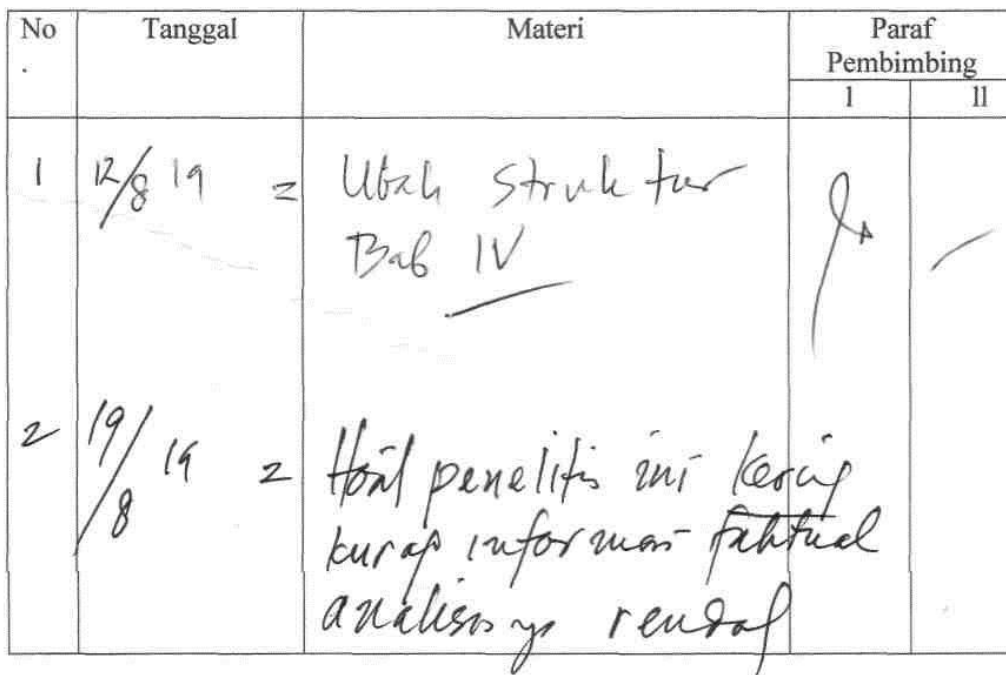 No Tanggal Materi Paraf
. Pembimbing
l ll
1 12/8 19 = Ubah Struktur
Bab IV
2 19/8 19 = Hasil penelitian ini kering
kurang informasi faktual
analisisnya rendah